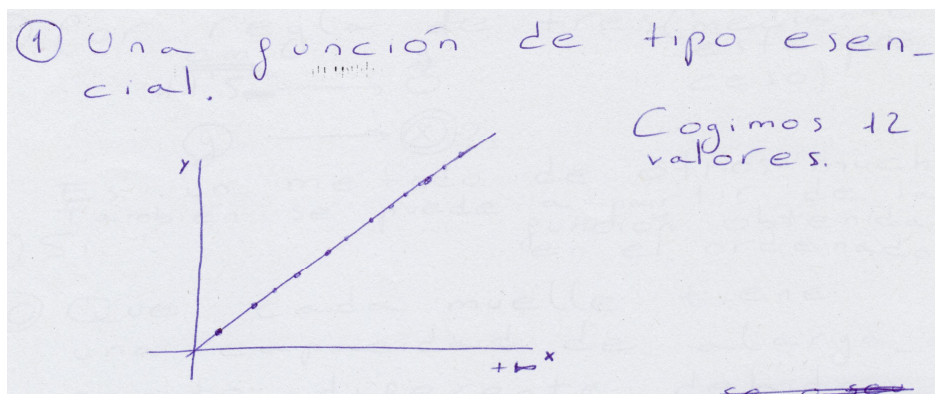 ① Una función de tipo esen_
cial.
Cogimos 12
valores.
y
x